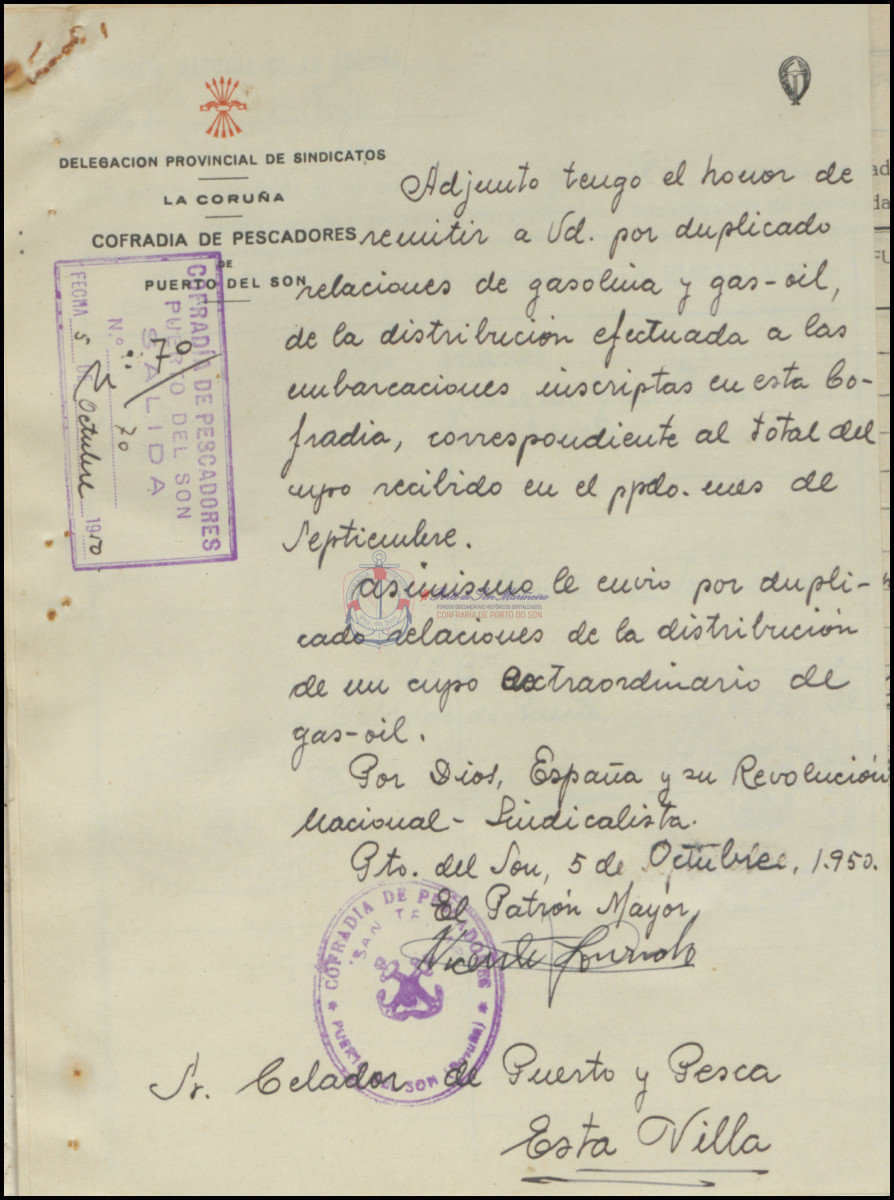 DELEGACION PROVINCIAL DE SINDICATOS
LA CORUÑA
COFRADIA DE PESCADORES
DE
PUERTO DEL SON
COFRADIA DE PESCADORES
PUERTO DEL SON
SALIDA
N.º 70
FECHA 5 DE Octubre 1950
Adjunto tengo el honor de
remitir a Vd. por duplicado
relaciones de gasolina y gas-oil,
de la distribución efectuada a las
embarcaciones inscriptas en esta Co-
fradia, correspondiente al total del
cupo recibido en el ppdo. mes de
Septiembre.
Asimismo le envio por dupli-
cado relaciones de la distribución
de un cupo extraordinario de
gas-oil.
Porto do Son Mariñeiro
FONDOS DOCUMENTAIS HISTÓRICOS DIXITALIZADOS
CONFRARÍA DE PORTO DO SON
Por Dios, España y su Revolución
Nacional-Sindicalista.
Pto. del Son, 5 de Octubre, 1.950.
El Patrón Mayor,
Vicente
COFRADIA DE PESCADORES
PUERTO DEL SON (Coruña)
Sr. Celador de Puerto y Pesca
Esta Villa